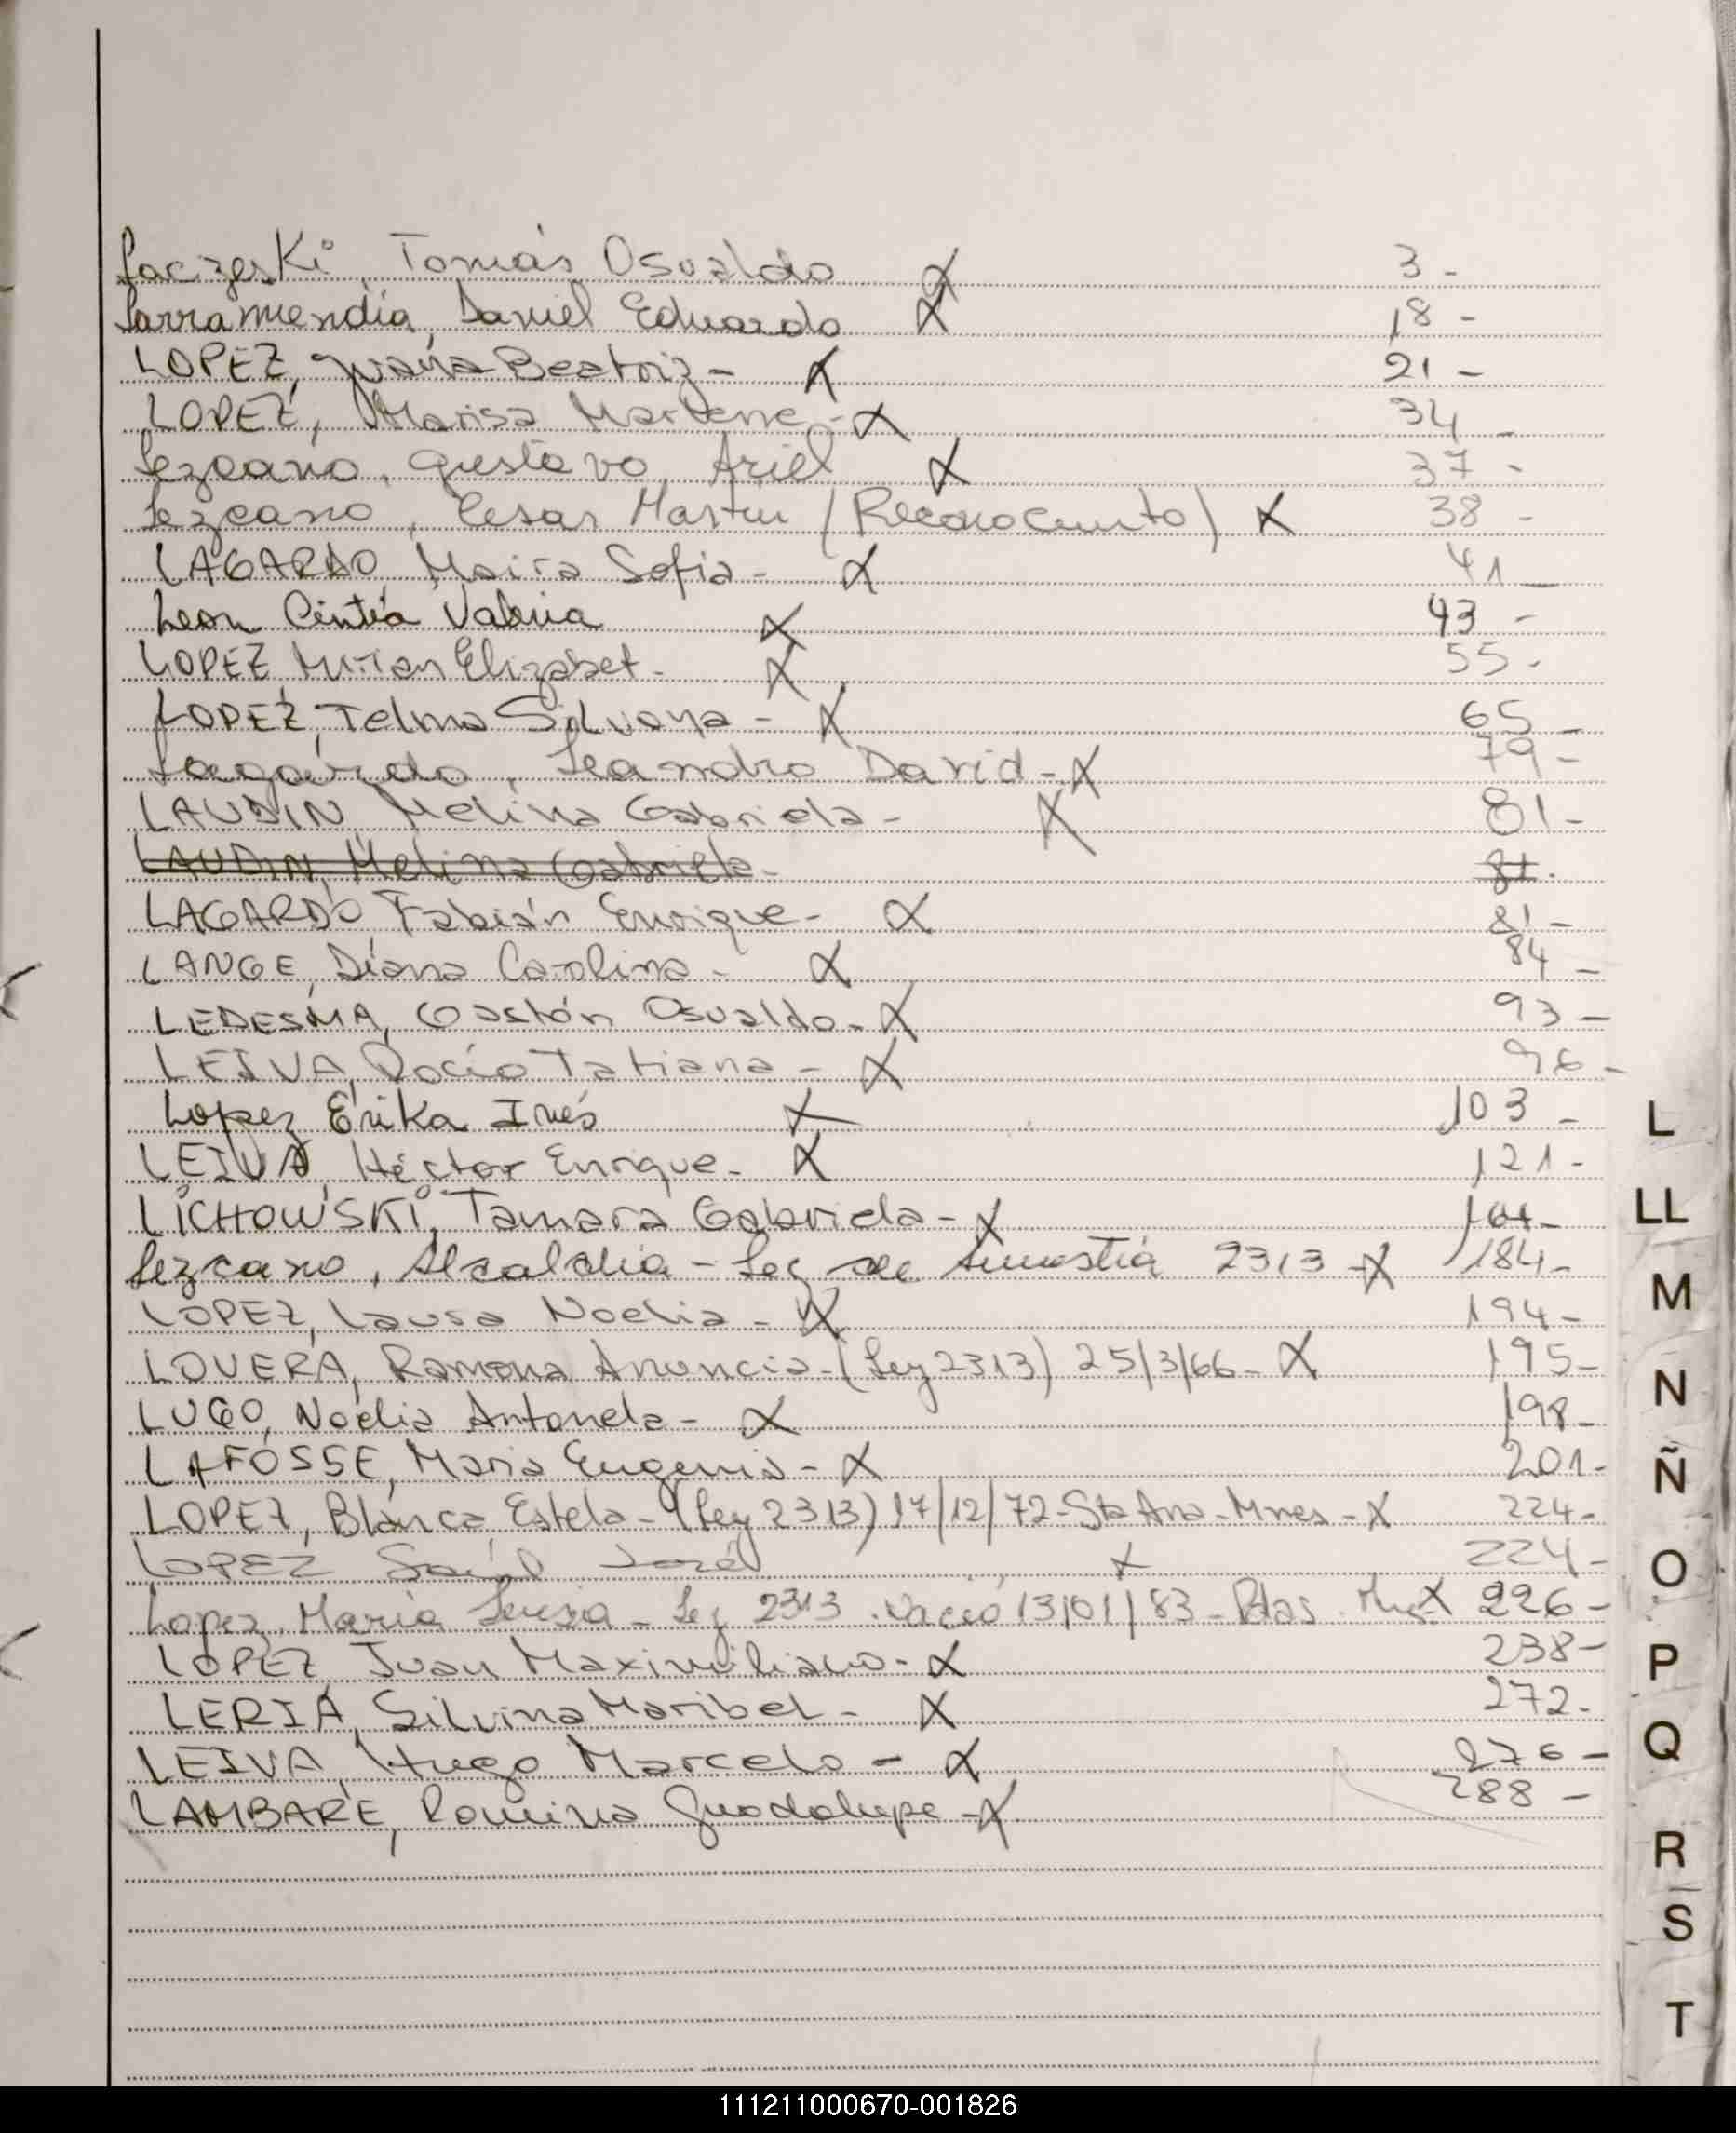 Laczeski Tomás Osvaldo X 3-
Larramendia, Daniel Eduardo X 18-
LOPEZ, Juana Beatriz- X 21-
LOPEZ, Marisa Marlene-X 34-
Lezcano, Gustavo Ariel X 37-
Lezcano, Cesar Martin (Reconocimiento) X 38-
LAGARDO, Maira Sofia- X 41-
Leon Cintia Valeria X 43-
LOPEZ Mirian Elizabet- X 55-
LOPEZ, Telma Silvana- X 65-
Lagardo, Leandro David-X 79-
LAUDIN, Melina Gabriela- X 81-
LAUDIN, Melina Gabriela- 81.
LAGARDO Fabián Enrique- X 81-
LANGE, Diana Carolina- X 84-
LEDESMA, Gastón Osvaldo-X 93-
LEIVA, Rocío Tatiana- X 96-
Lopez Erika Inés X 103-
LEIVA, Héctor Enrique- X 121-
LICHOWSKI, Tamara Gabriela-X 164-
Lezcano, - Ley de 2313-X 184-
LOPEZ, Laura Noelia- X 194-
LOVERA, Ramona Anuncia-(Ley 2313) 25/3/66-X 195-
LUGO, Noelia Antonela- X 198-
LAFOSSE, Maria Eugenia-X 201-
LOPEZ, Blanca Estela-(Ley 2313) 17/12/72-Sta Ana-Mnes-X 224-
LOPEZ Saúl José X 224-
Lopez, Maria Teresa- Ley 2313. Nació 13/01/83- Pdas. X 226-
LOPEZ Juan Maximiliano-X 238-
LERIA, Silvina Maribel- X 272-
LEIVA, Hugo Marcelo- X 276-
LAMBARE, Romina Guadalupe-X 288-
L
LL
M
N
Ñ
O
P
Q
R
S
T
111211000670-001826